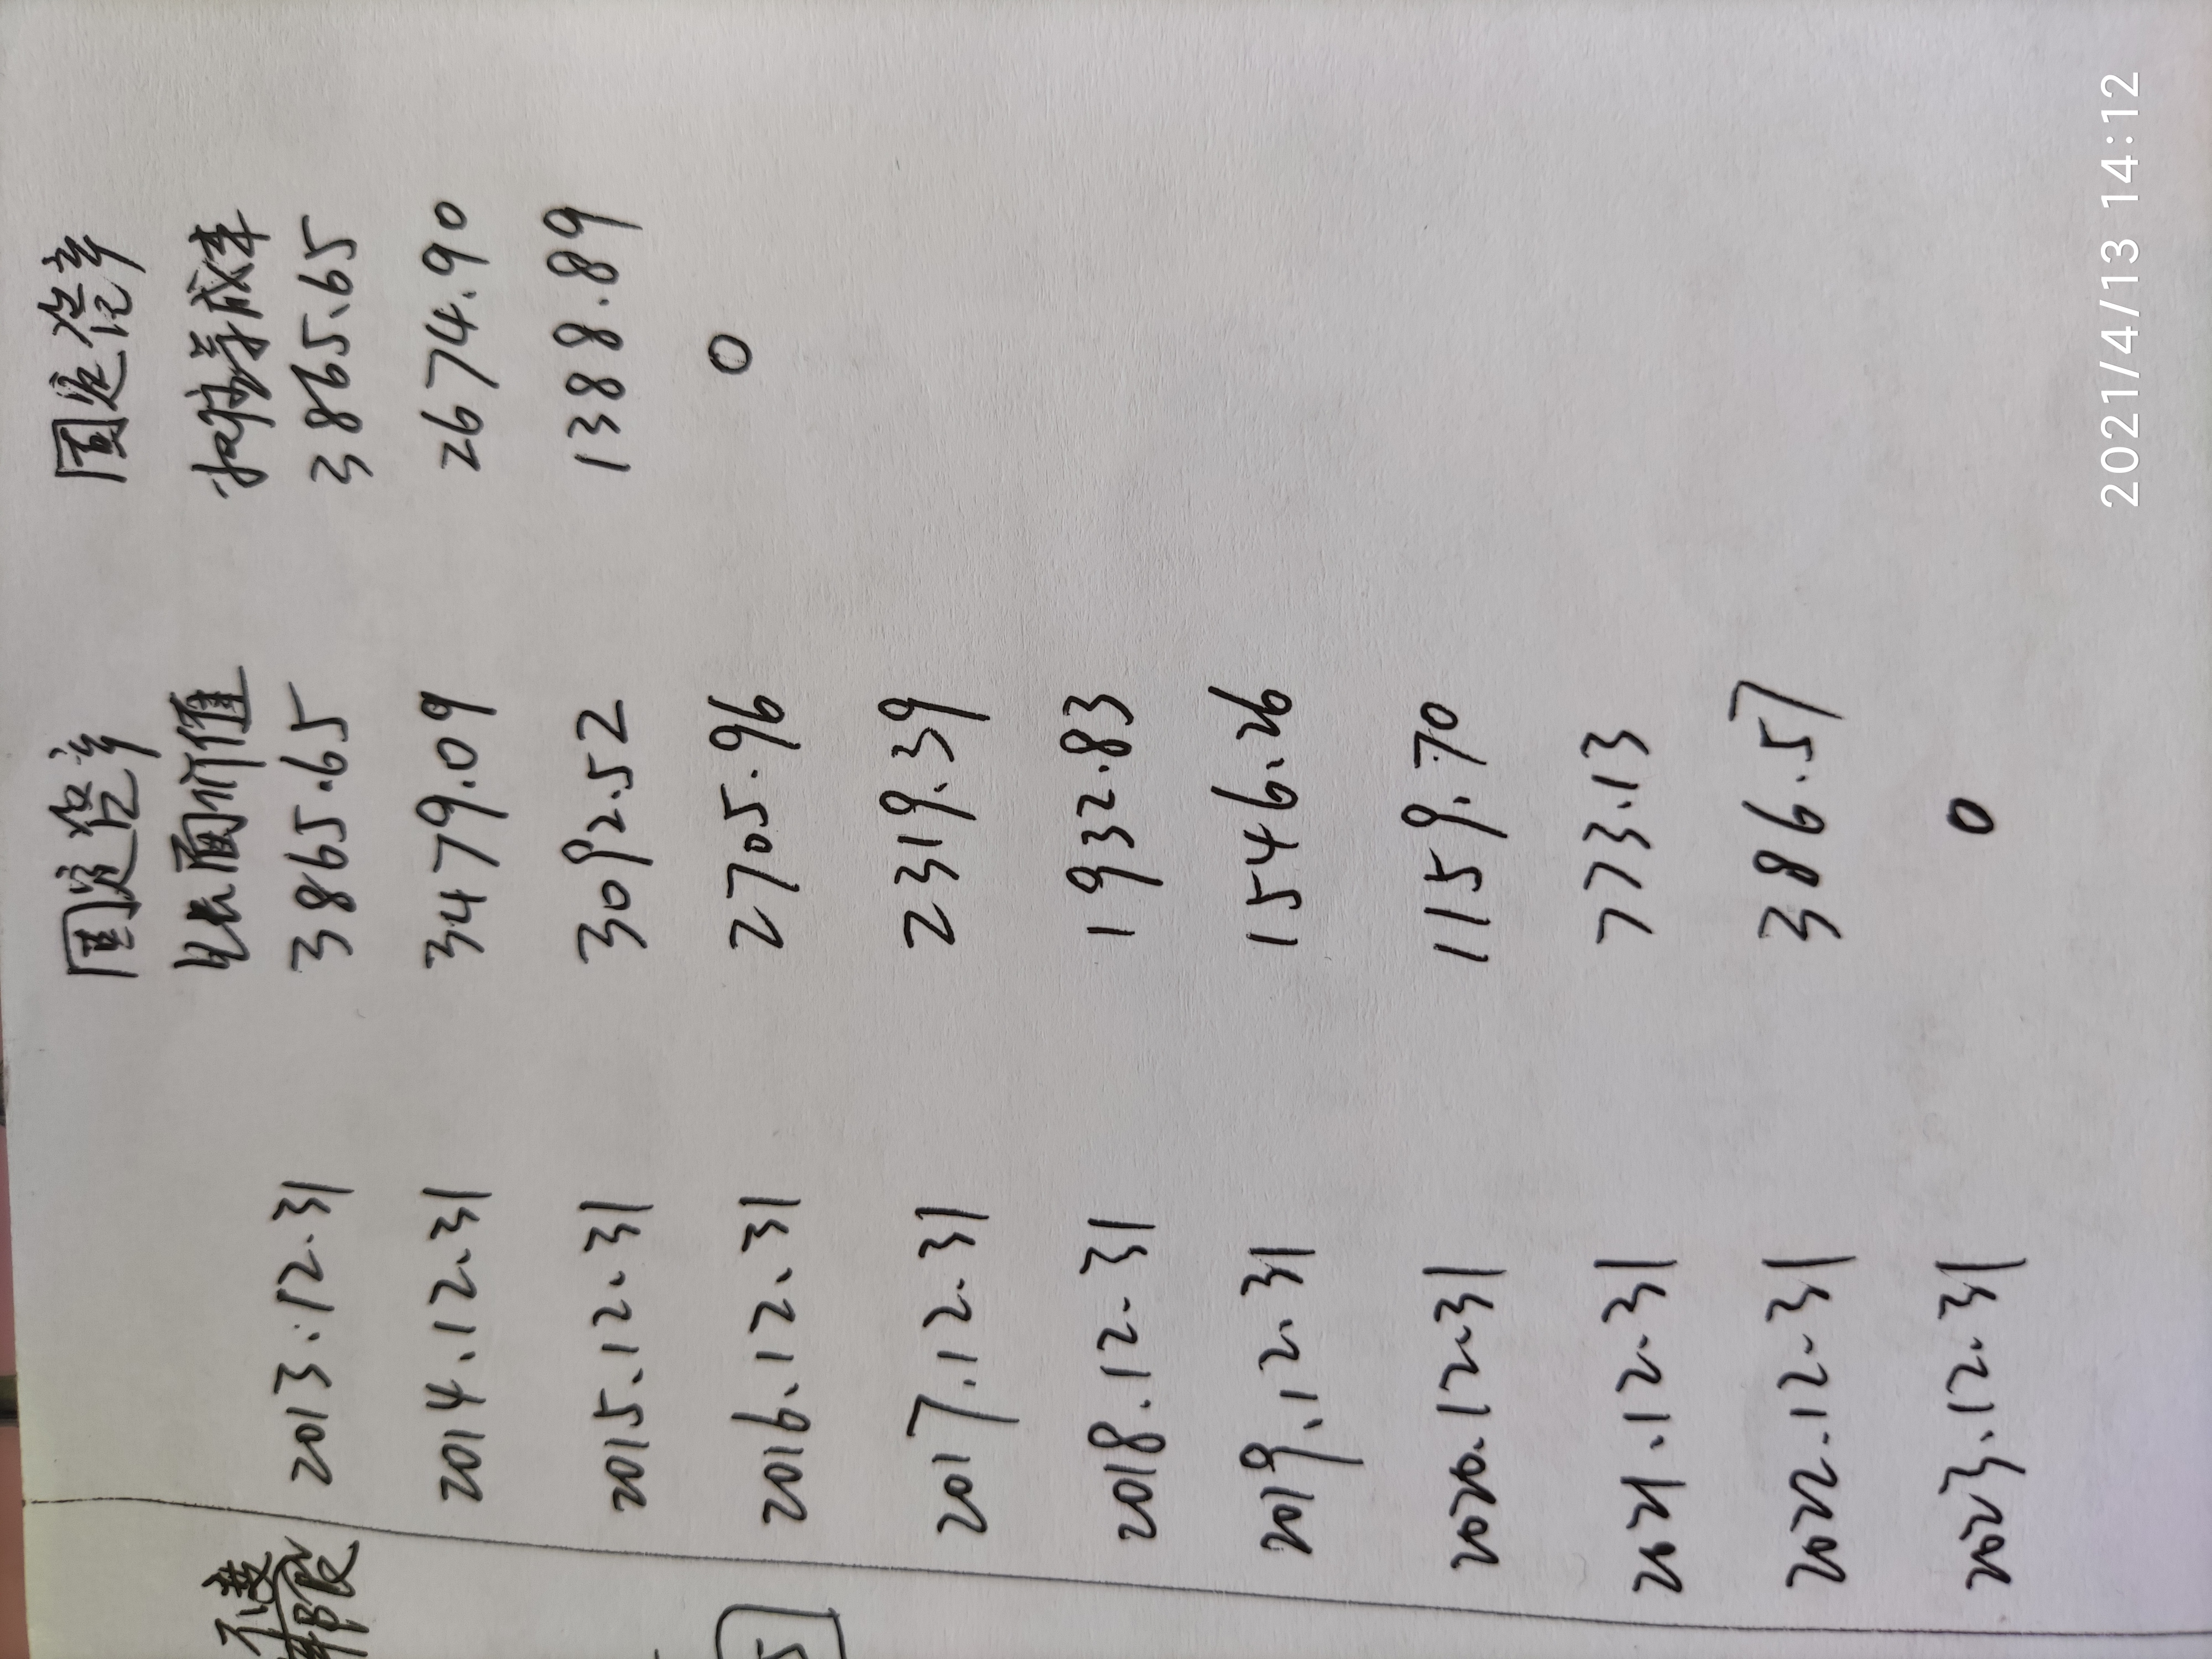 固定资产 固定资产
账面价值 摊余成本
2013.12.31 3865.65 3865.65
2014.12.31 3479.09 2674.90
2015.12.31 3092.52 1388.89
2016.12.31 2705.96 0
2017.12.31 2319.39
2018.12.31 1932.83
2019.12.31 1546.26
2020.12.31 1159.70
2021.12.31 773.13
2022.12.31 386.57
2023.12.31 0
2021/4/13 14:12